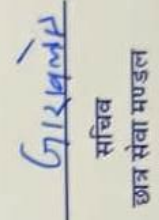 सचिव
छात्र सेवा मण्डल